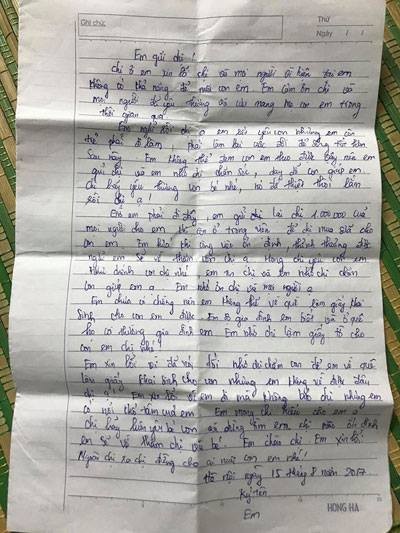 Ghi chú:
Thứ
Ngày / /
Em gửi chị!
Chị ơi em xin lỗi chị và mọi người vì hiện tại em
không có khả năng để nuôi con em. Em cảm ơn chị và
mọi người đã yêu thương và cưu mang mẹ con em trong
thời gian qua.
Em nghĩ rồi chị ạ em rất yêu con nhưng em còn
trẻ phải đi làm, phải làm lại cuộc đời để sống tốt hơn
sau này. Em không thể đem con em theo được vậy nên em
gửi chị và em nhờ chị chăm sóc, dạy dỗ con giúp em.
Chị hãy yêu thương con bé nhé, nó đã thiệt thòi lắm
rồi chị ạ!
Giờ em phải đi đây, em gửi chị lại chị 1.000.000 của
mọi người cho em khi còn ở trong viện để chị mua sữa cho
con em. Em hứa khi công việc ổn định, thỉnh thoảng được
nghỉ em sẽ về thăm con chị ạ. Mong chị yêu con em
chị nhé, em tin chị và em nhờ chị chăm
con giúp em ạ. Em nhớ ơn chị và mọi người ạ
Em chưa có chồng nên em không thể về quê làm giấy khai
sinh cho con em được. Em sợ gia đình em biết và ở quê
họ cười gia đình em. Em nhờ chị làm giấy tờ cho
con em chị nhé.
Em xin lỗi vì đã nói dối nhờ chị chăm con để em về quê
lấy giấy khai sinh cho con nhưng em không về được đâu
chị ạ. Em xin lỗi vì em đi mà không chị nhưng em
có nỗi khổ tâm của em. Em mong chị hiểu cho em ạ
Chị hãy luôn yêu bé con và đúng em, chị nào ổn định
em sẽ về thăm chị và bé. Em chào chị Em xin lỗi.
Ngoài chị ra chị đừng cho ai nuôi con em nhé!
Hà Nội ngày 15 tháng 8 năm 2017
Ký tên
Em
HONG HA